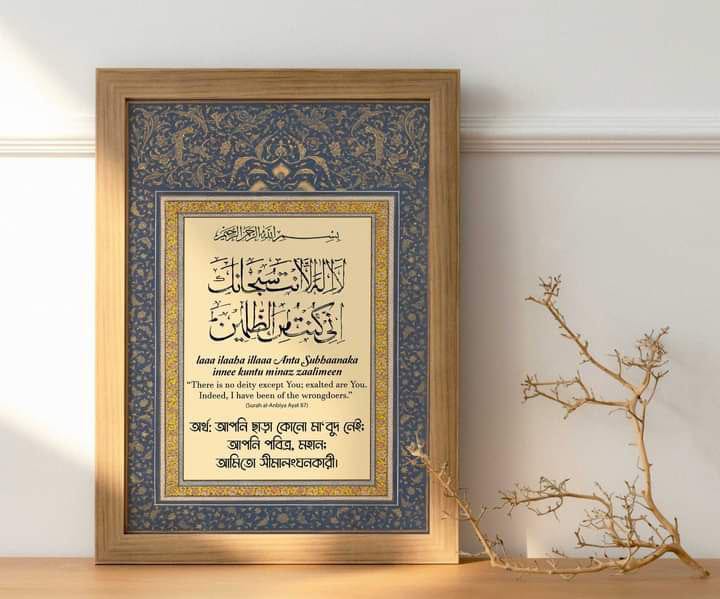 بسم الله الرحمن الرحيم
لا إله إلا أنت سبحانك
إني كنت من الظالمين
laaa ilaaha illaaa Anta Subhaanaka
innee kuntu minaz zaalimeen
“There is no deity except You; exalted are You.
Indeed, I have been of the wrongdoers.”
(Surah al-Anbiya Ayat 87)
অর্থ: আপনি ছাড়া কোনো মা‘বুদ নেই;
আপনি পবিত্র, মহান;
আমিতো সীমালংঘনকারী।